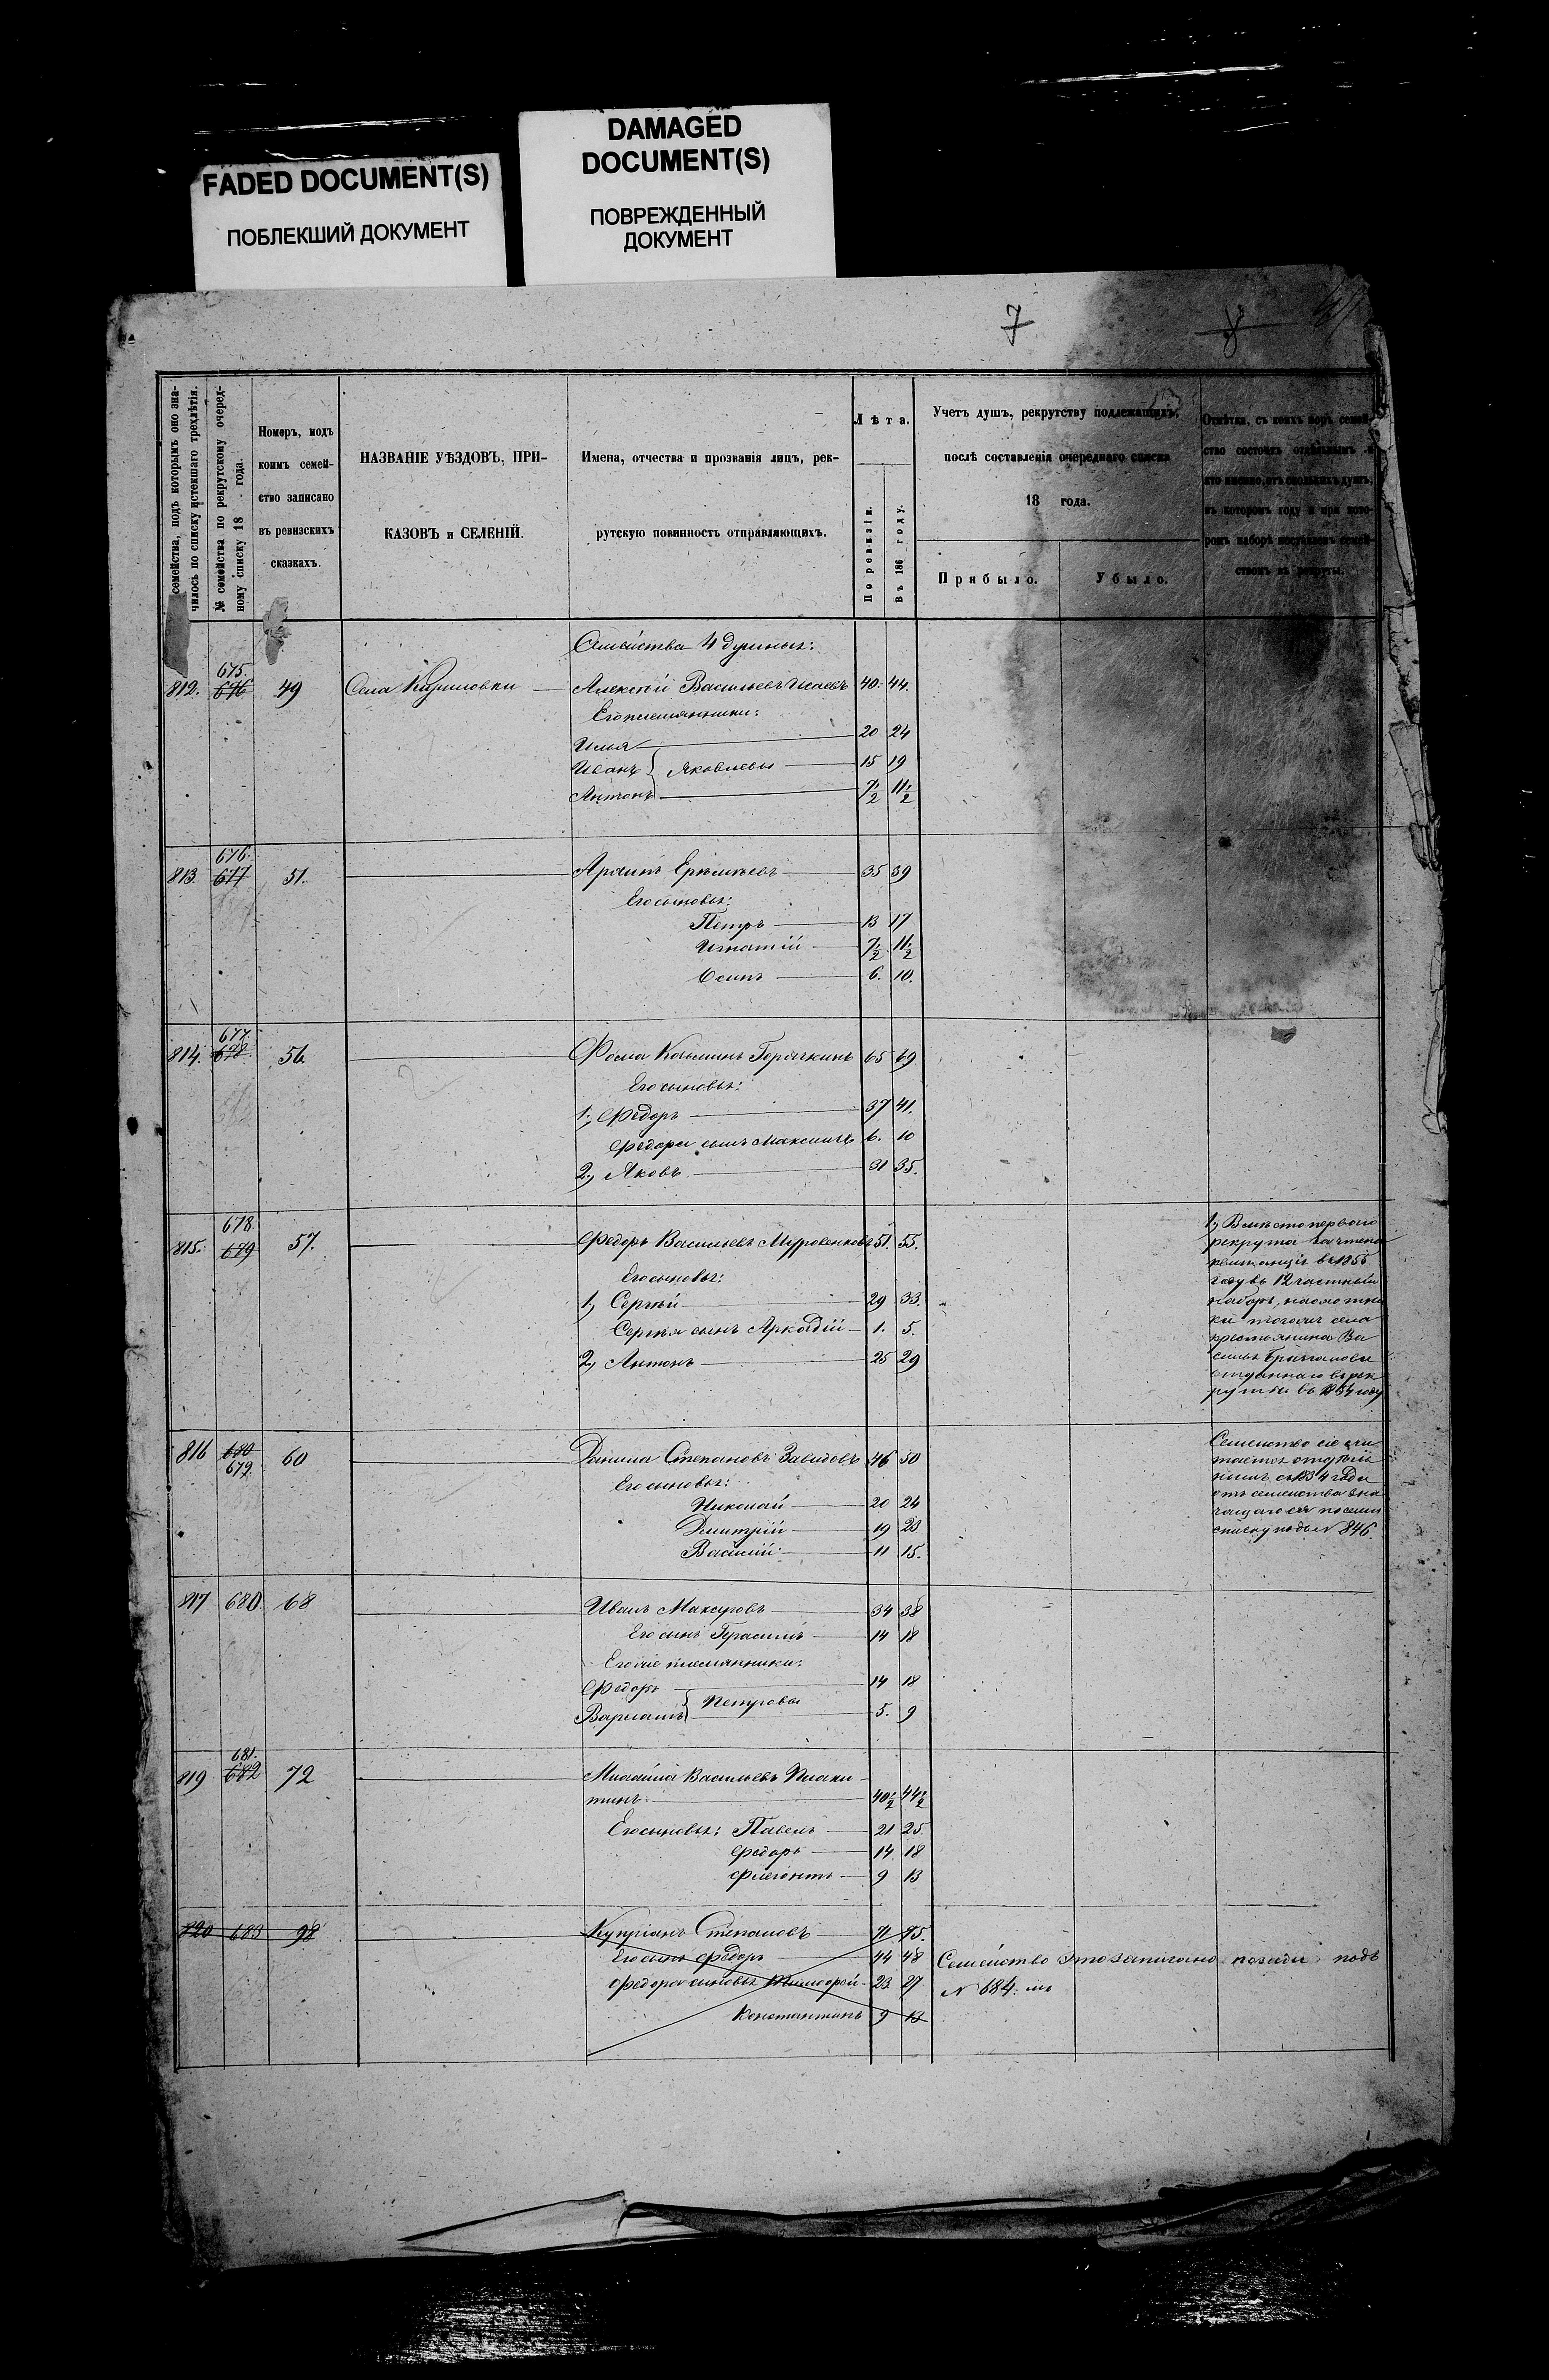 FADED DOCUMENT(S)
ПОБЛЕКШИЙ ДОКУМЕНТ
DAMAGED
DOCUMENT(S)
ПОВРЕЖДЕННЫЙ
ДОКУМЕНТ
7
8
семейства, подъ которымъ оно зна-
чилось по списку истекшаго трехлѣтія.
№ семейства по рекрутскому очеред-
ному списку 18 года.
Номеръ, подъ
коимъ семей-
ство записано
въ ревизскихъ
сказкахъ.
НАЗВАНІЕ УѢЗДОВЪ, ПРИ-
КАЗОВЪ и СЕЛЕНІЙ.
Имена, отчества и прозванія лицъ, рек-
рутскую повинность отправляющихъ.
Лѣта.
По ревизіи.
Въ 186 году.
Учетъ душъ, рекрутству подлежащихъ,
послѣ составленія очереднаго списка
18 года.
Прибыло.
Убыло.
Отмѣтка, съ коихъ поръ семей-
ство состоитъ отдѣльнымъ и
кто именно, отъ сколькихъ душъ,
въ которомъ году и при кото-
ромъ наборѣ поступилъ семей-
ствомъ въ рекруты.
Семейства 4 душныя:
812. 675. 676 49 Села Алексѣй Васильевъ Исаевъ 40. 44.
Его племянники:
Илья 20 24
Иванъ Яковлевы 15 19
Антонъ 7 1/2 11 1/2
813. 676. 677 51. 35 39
Его сыновья:
Петръ 13 17
Игнатій 7 1/2 11 1/2
Осипъ 6. 10.
814. 677. 678. 56. Фома Козьминъ Горячкинъ 65 69
Его сыновья:
1, Федоръ 37 41.
Федора сынъ Максимъ 6. 10
2, Яковъ 31 35.
815. 678. 679 57. Федоръ Васильевъ 51. 55.
Его сыновья:
1, Сергѣй 29 33.
Сергѣя сынъ Аркадій 1. 5.
2, Антонъ 25 29
1, Вмѣсто перваго
рекрута зачтена
квитанція въ 1855
году въ 12 частный
наборъ,
села
крестьянина Ва
отданнаго въ рек
руты въ 1854 году
816 680 679. 60 Данила Степановъ Завидовъ 46 50
Его сыновья:
Николай 20 24
Дмитрій 19 23
Василій 11 15.
Семейство сіе счи
тается отдѣль
нымъ съ 1834 года
отъ семейства зна
чащагося по сему
списку подъ № 846.
817 680. 68 Иванъ Макаровъ 34 38
Его сынъ Герасимъ 14 18
Его же племянники:
Федоръ 14 18
Варламъ Петровы 5. 9
819 681. 682 72 Михайла Васильевъ Плаки-
тинъ 40 1/2 44 1/2
Его сыновья: Павелъ 21 25.
Федоръ 14 18
Флегонтъ 9 13
820 683 98 Купріанъ Степановъ 71 75.
Его сынъ Федоръ 44 48 Семейство это записано позади подъ
Федора сыновья Тимофей 23 27 № 684.мъ
Константинъ 9 13